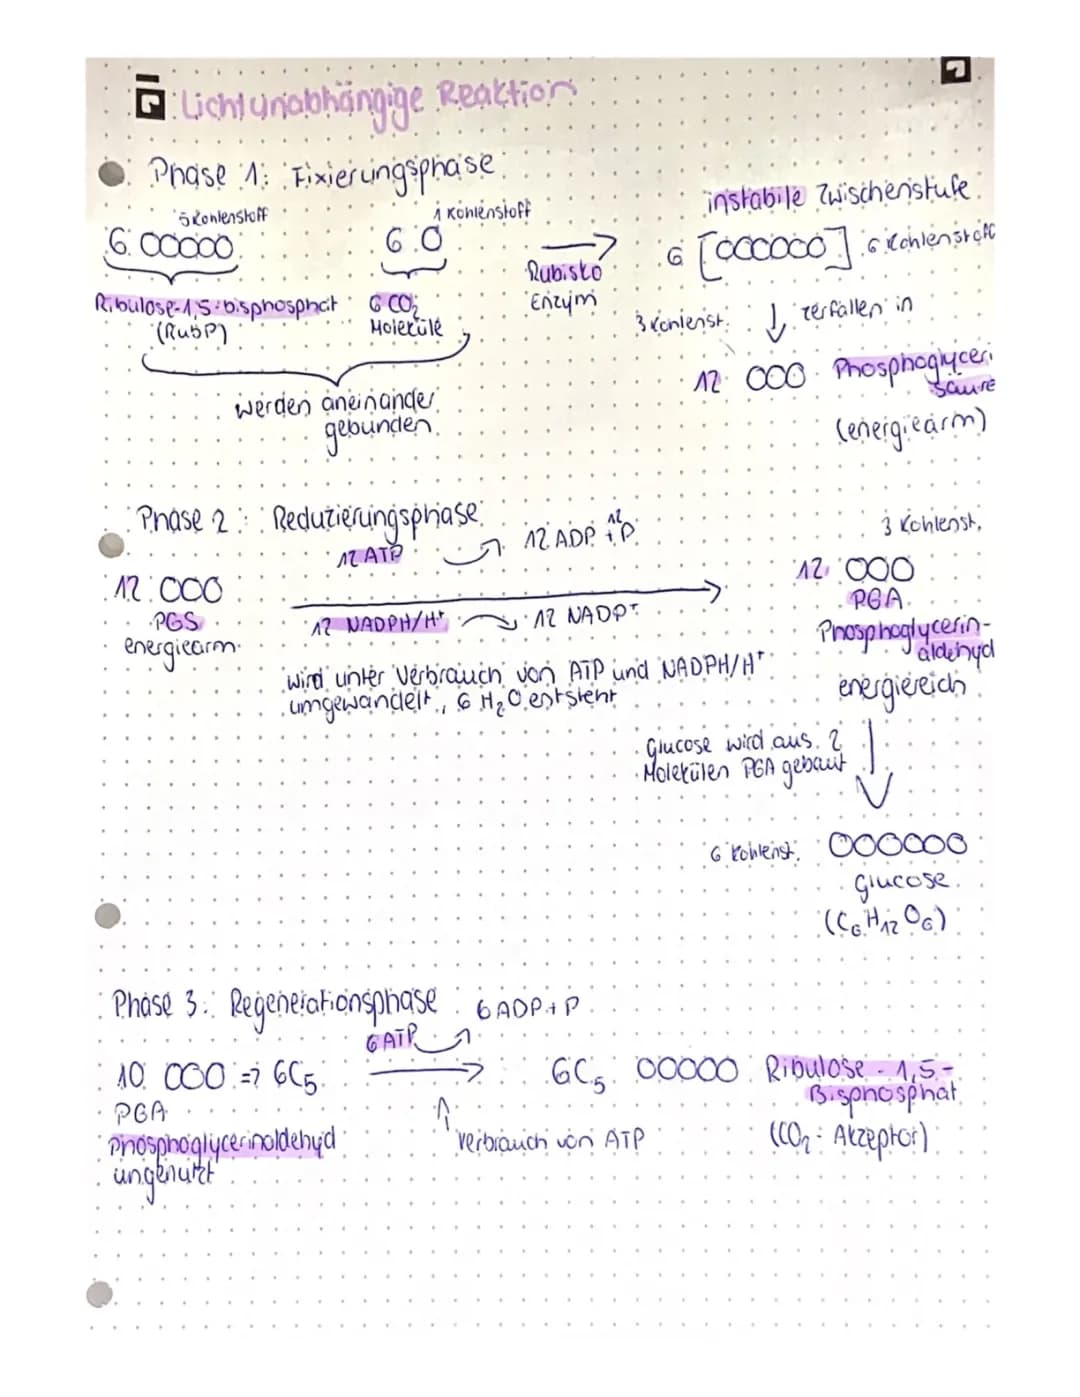 Lichtunabhängige Reaktion
Phase 1: Fixierungsphase
5 Kohlenstoff
1 Kohlenstoff
instabile Zwischenstufe
6 OOOOO
6 O
6 [OOOOOO] 6 Kohlenstoff
Rubisko
Enzym
Ribulose-1,5-bisphosphat
(RuBP)
6 CO₂
Moleküle
3 Kohlenst.
zerfallen in
12 OOO Phosphoglycerin
säure
werden aneinander
gebunden
(energiearm)
Phase 2: Reduzierungsphase
12 ATP
12 ADP + 12 P
3 Kohlenst.
12 OOO
12 OOO
PGS
energiearm
12 NADPH/H⁺
12 NADP⁺
PGA
Phosphoglycerin-
aldehyd
energiereich
wird unter Verbrauch von ATP und NADPH/H⁺
umgewandelt, 6 H₂O entsteht
Glucose wird aus 2
Molekülen PGA gebaut
6 Kohlenst. OOOOOO
Glucose
(C₆H₁₂O₆)
Phase 3: Regenerationsphase
6 ATP
6 ADP + P
10 OOO => 6C₅
6C₅ OOOOO Ribulose-1,5-
Bisphosphat
(CO₂-Akzeptor)
PGA
Phosphoglycerinaldehyd
ungenutzt
Verbrauch von ATP